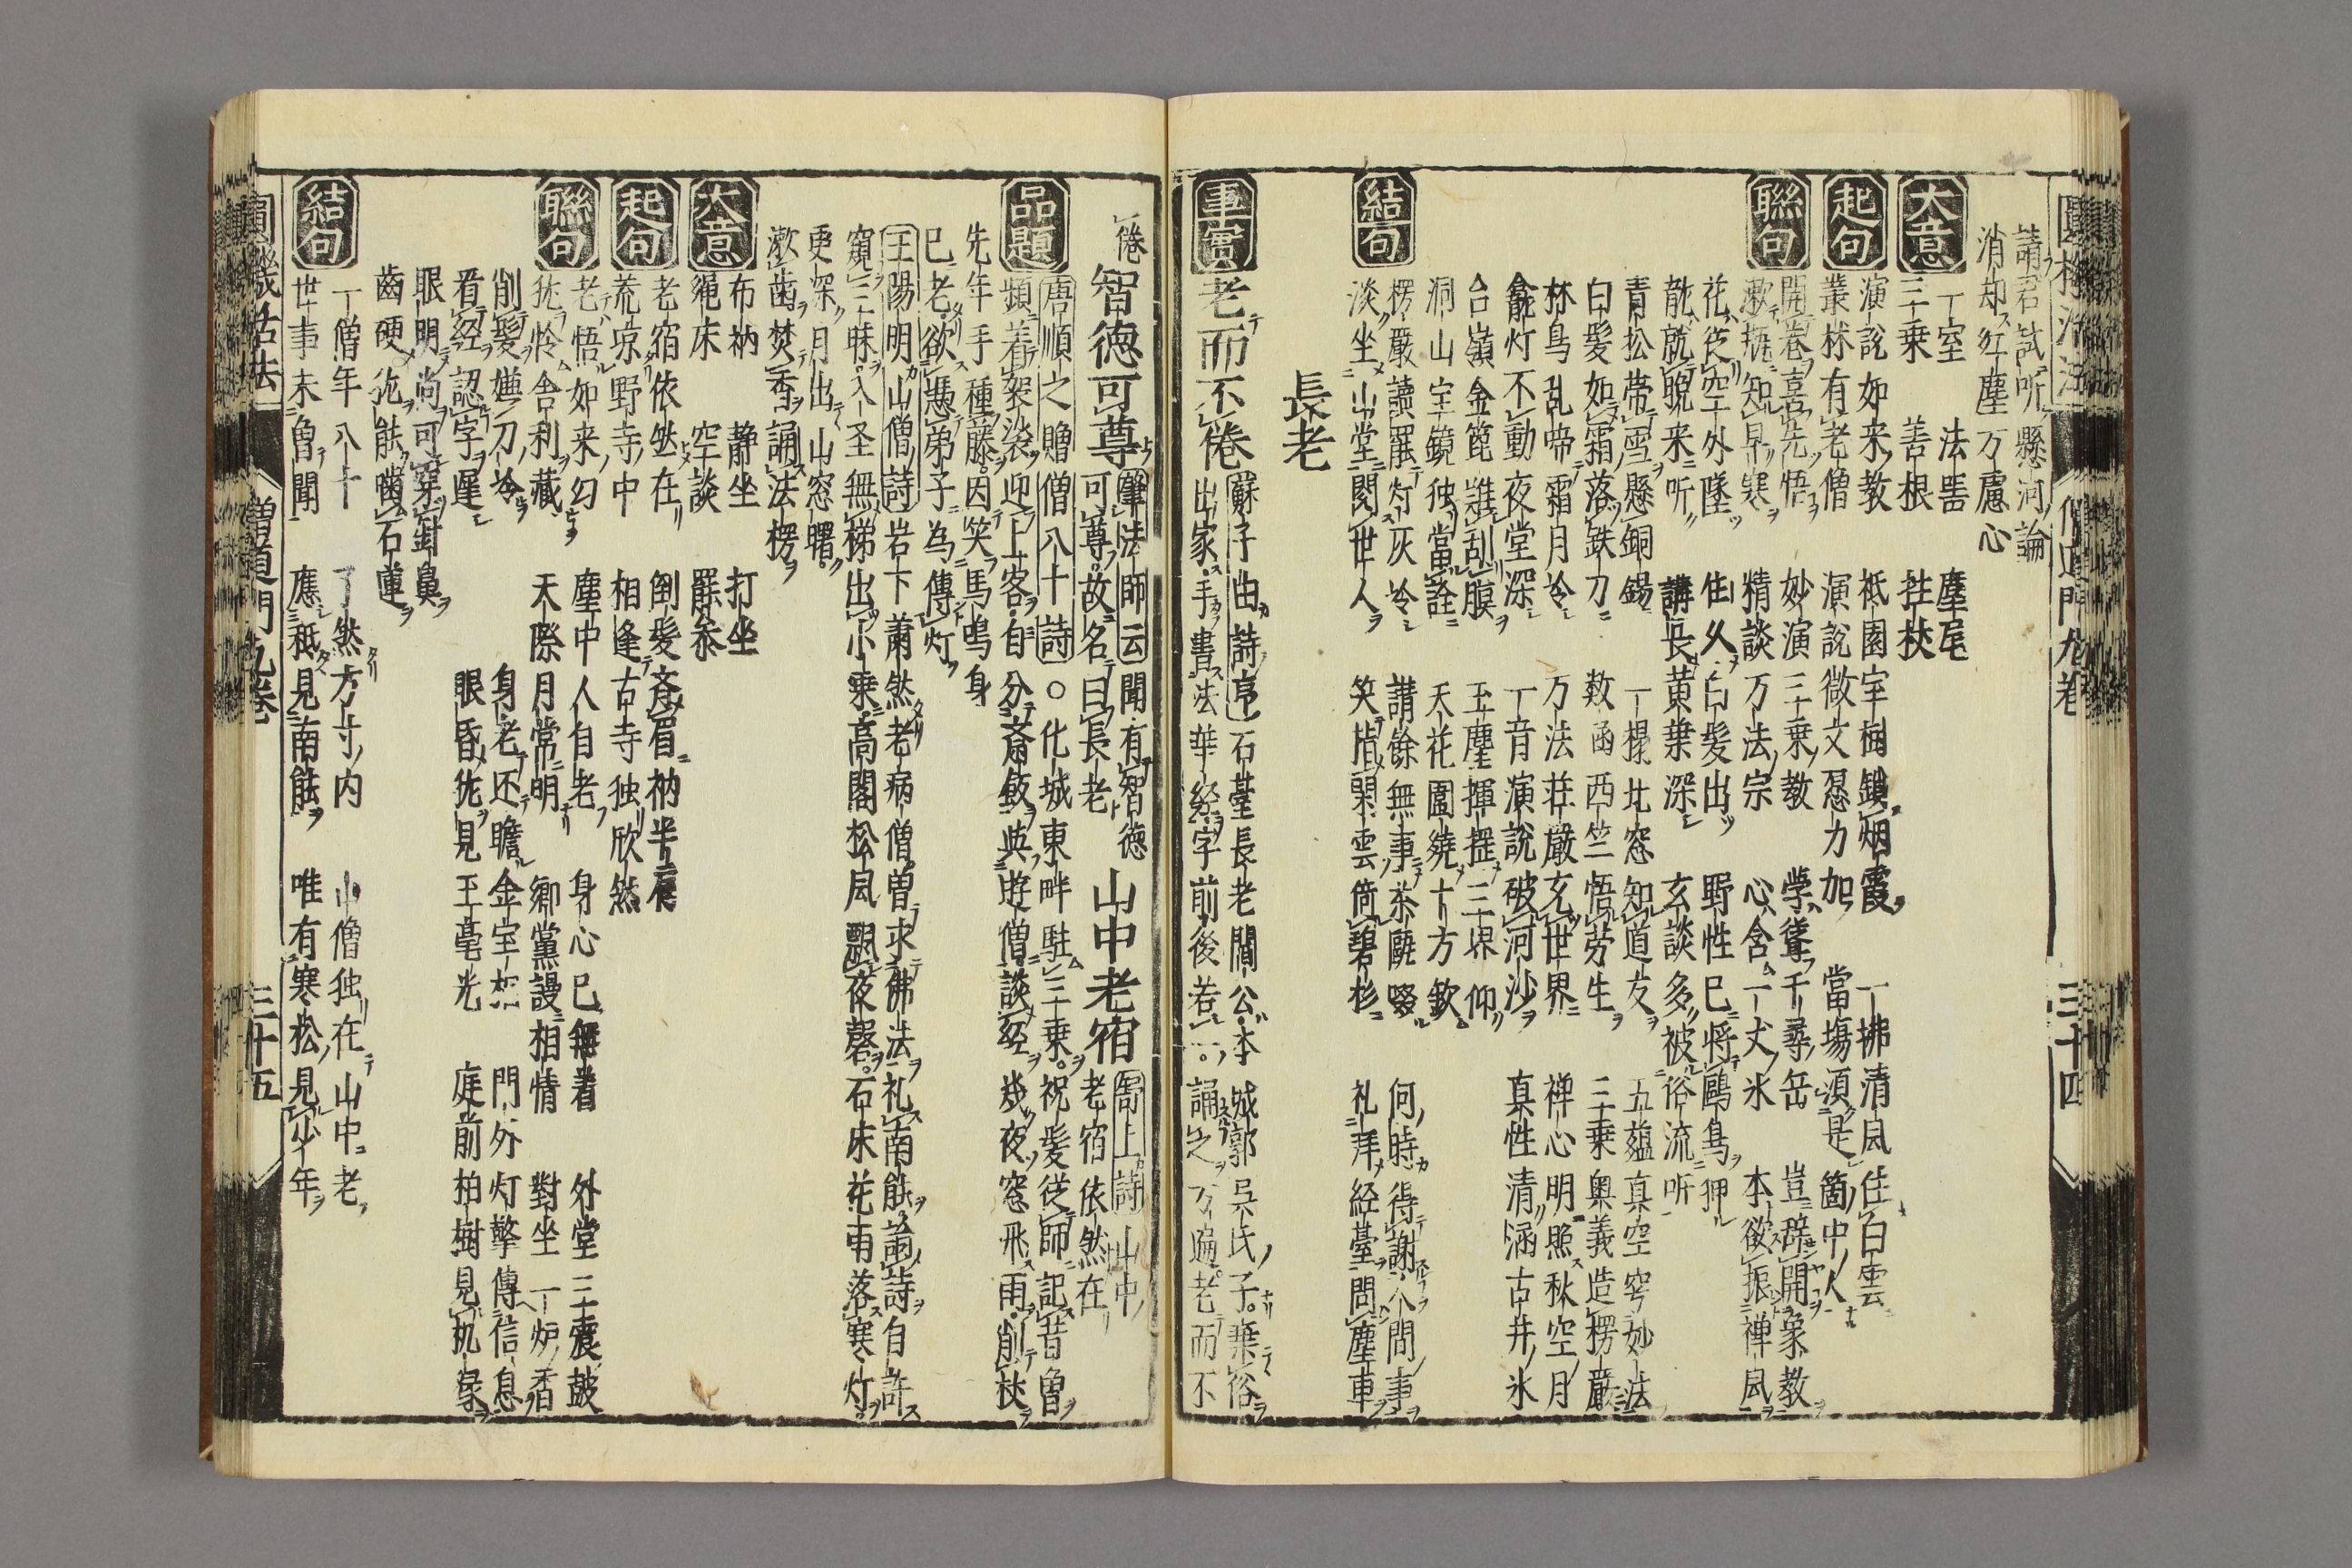 請君試听懸河論
消却紅塵万慮心
大意 一室 法器 麈尾
三乗 善根 拄杖
起句 演説如来教 祗園宝樹鎖烟霞 一拂清風住白雲
叢林有老僧 演説微文忍力加 當場須是箇中人
聯句 開巻喜先悟 妙演三乗教 学聳千尋岳 豈辞開象教
漱瓶知早寒 精談万法宗 心含一丈氷 本欲振禅風
花從空外墜 住久白髪出 野性已将鷗鳥狎
龍就晩来听 講長黄葉深 玄談多被俗流听
青松帯雪懸銅錫 一榻北窓知道友 五蘊真空窮妙法
白髪如霜落鉄刀 数函西竺悟労生 三乗奥義造楞厳
林鳥乱啼霜月冷 万法荘厳玄世界 禅心明照秋空月
龕灯不動夜堂深 一音演説破河沙 真性清涵古井氷
台嶺金篦誰刮膜 玉麈揮提三界仰
洞山宝鏡独當詮 天花圍繞十方欽
結句 楞厳讀罷灯灰冷 講餘無事茶甌啜 何時得謝人間事
淡坐山堂閲世人 笑指閑雲倚碧杉 礼拜経臺問塵車
長老
事實 老而不倦 蘇子由詩序 石臺長老閶公本城郭呉氏子棄俗
出家手書法華経字前後若一誦之万遍老而不
倦 智徳可尊 肇法師云 聞有智徳 山中老宿 喬上詩 山中
可尊故名曰長老 老宿依然在
品題 唐順之贈僧八十詩 ○化城東畔駐三乗祝髪従師記昔曽
頻着袈裟迎上客自分斎飯与遊僧談経幾夜窓飛雨削杖
先年手種藤因笑馬鳴身
已老欲憑弟子為傳灯
王陽明山僧詩 岩下蕭然老病僧曽求佛法礼南能論詩自許
窺三昧入圣無梯出小乗高閣松風飄夜磬石床花雨落寒灯
更深月出山窓曙
漱歯焚香誦法楞
大意 布衲 静坐 打坐
縄床 空談 罷参
起句 老宿依然在 倒髪斉眉衲半肩
荒凉野寺中 相逢古寺独欣然
聯句 老悟如来幻 塵中人自老 身心已無着 外堂三震鼓
犹怜舎利藏 天際月常明 郷黨謾相情 対坐一炉香
削髪嫌刀冷 身老还瞻金宝相 門外灯擎傳信息
看経認字遅 眼昏犹見玉毫光 庭前柏樹見机縁
眼明尚可穿針鼻
歯硬犹能嚙石蓮
結句 一僧年八十 了然方寸内 山僧独在山中老
世事未曽聞 應秪見南能 唯有寒松見少年
僧道門九巻 三十四
圓機活法 僧道門九巻 三十五